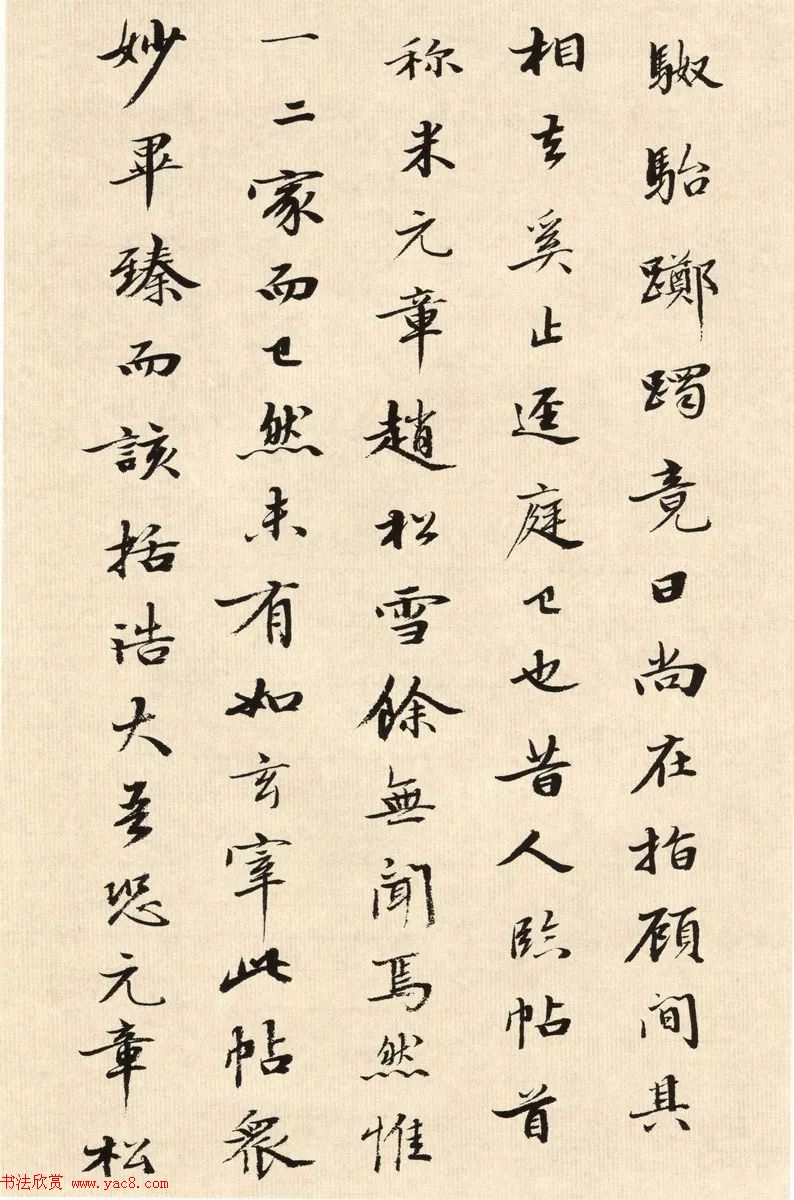 駑駘躑躅竟日尚在指顾间其
相去奚止逕庭已也昔人临帖首
称米元章趙松雪餘無聞焉然惟
一二家而已然未有如玄宰此帖衆
妙畢臻而該括浩大吾恐元章松
书法欣赏 www.yac8.com